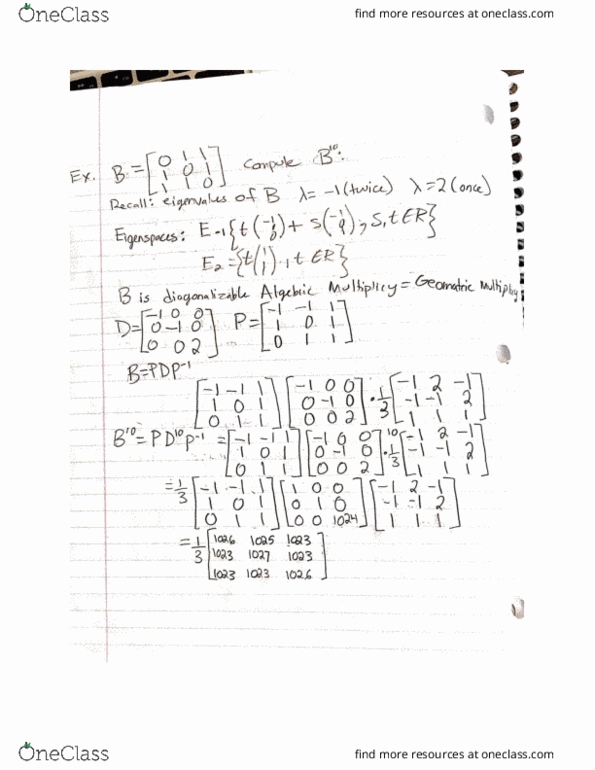 OneClass find more resources at oneclass.com
Ex. B = [0 1 1; 1 0 1; 1 1 0] Compute B^10:
Recall: eigenvalues of B λ = -1 (twice) λ = 2 (once)
Eigenspaces: E-1 {t(-1 1 0) + s(-1 0 1), s, t ∈ R}
E2 = {t(1 1 1), t ∈ R}
B is diagonalizable Algebric Multiplicy = Geomatric Multiplicy
D = [-1 0 0; 0 -1 0; 0 0 2] P = [-1 -1 1; 1 0 1; 0 1 1]
B = PDP^-1
[-1 -1 1; 1 0 1; 0 1 1] [-1 0 0; 0 -1 0; 0 0 2] · 1/3 [-1 2 -1; -1 -1 2; 1 1 1]
B^10 = PD^10P^-1 = [-1 -1 1; 1 0 1; 0 1 1] [-1 0 0; 0 -1 0; 0 0 2]^10 · 1/3 [-1 2 -1; -1 -1 2; 1 1 1]
= 1/3 [-1 -1 1; 1 0 1; 0 1 1] [1 0 0; 0 1 0; 0 0 1024] [-1 2 -1; -1 -1 2; 1 1 1]
= 1/3 [1026 1025 1023; 1023 1027 1023; 1023 1023 1026]
OneClass find more resources at oneclass.com